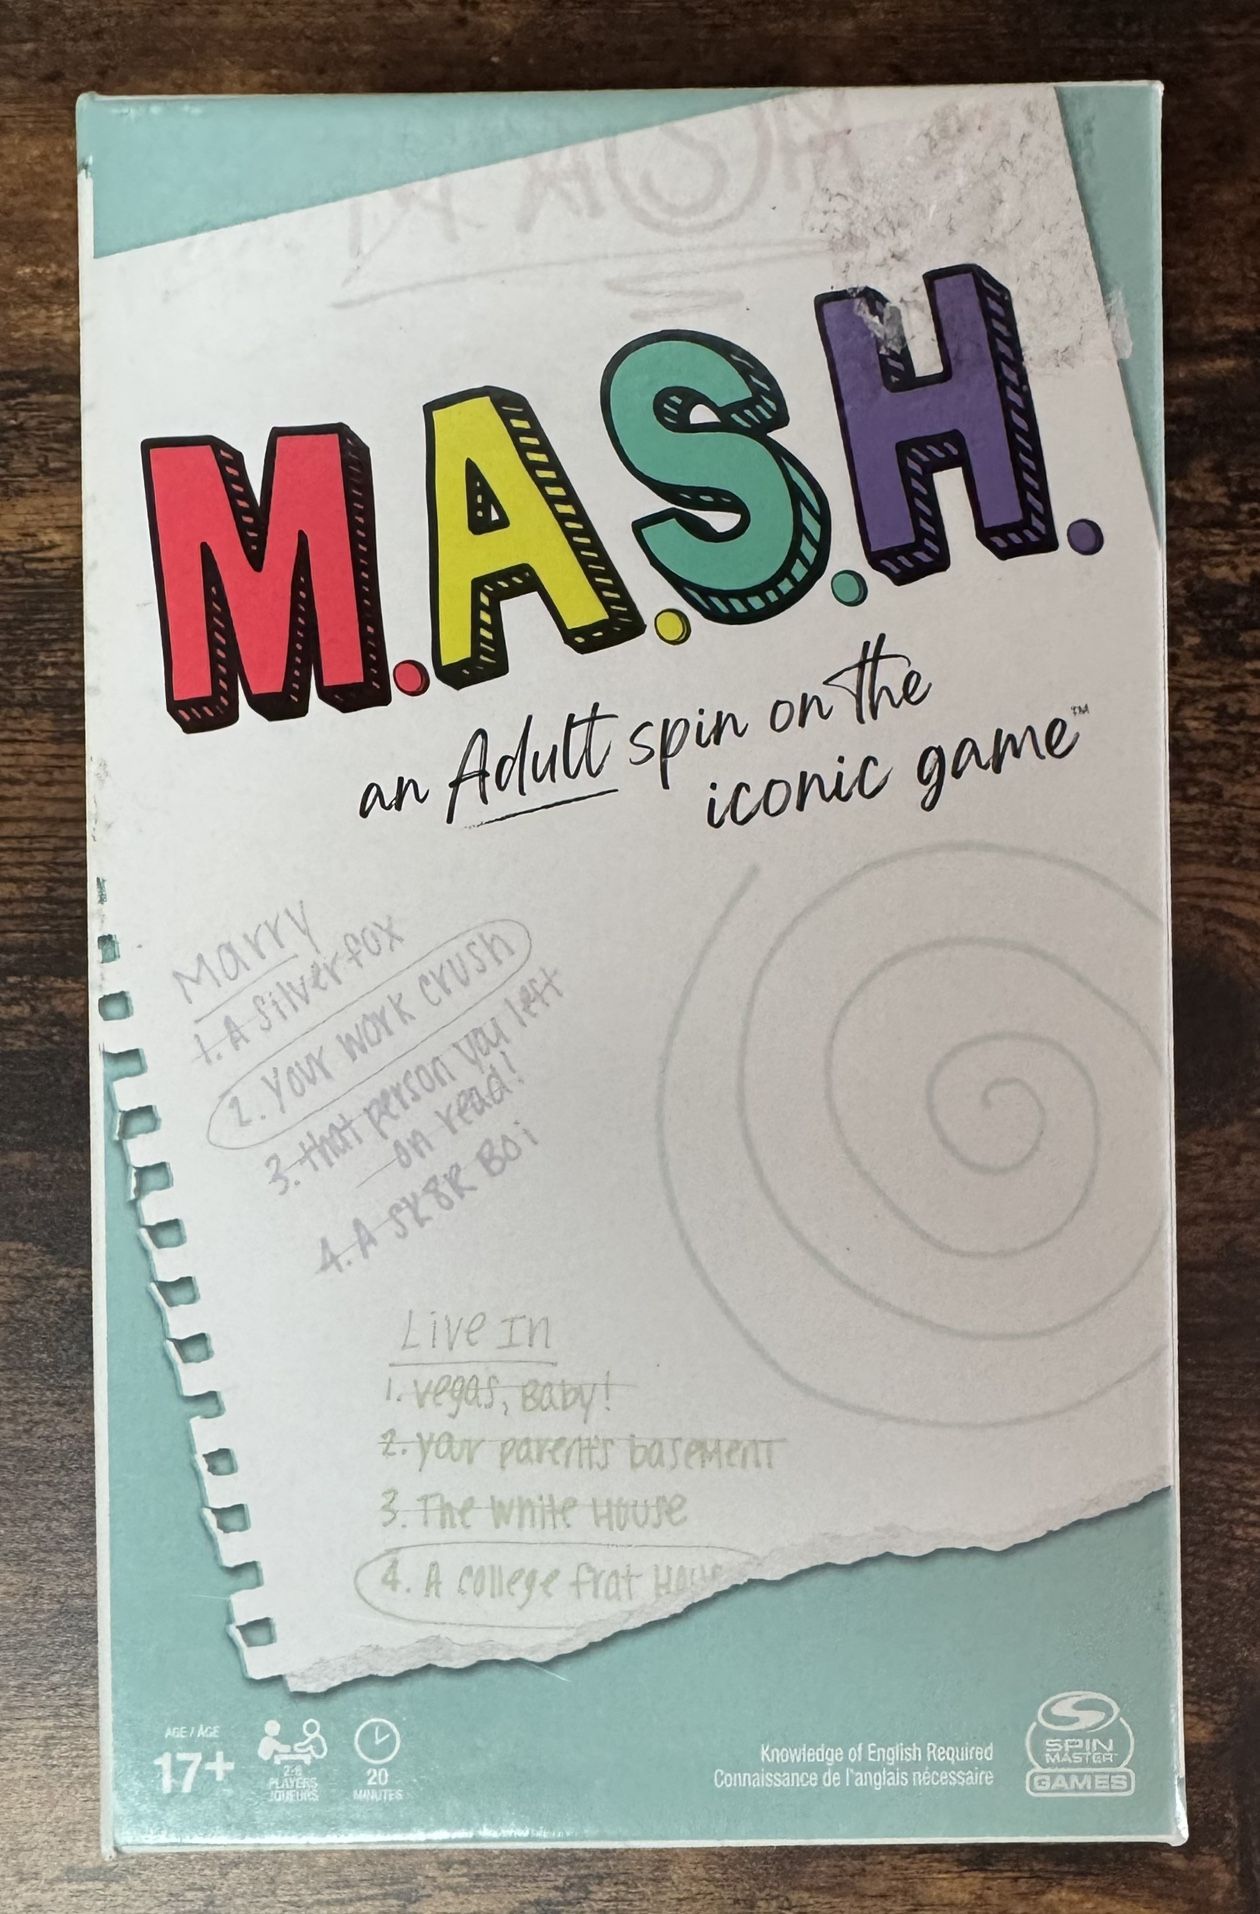 MASH
M.A.S.H.
an Adult spin on the
iconic game™
Marry
1. A Silver fox
2. Your work crush
3. that person you left
on read!
4. A SK8R BOi
Live In
1. Vegas, Baby!
2. your parent's basement
3. The White House
4. A college frat House
AGE / ÂGE
17+
2-6
PLAYERS
JOUEURS
20
MINUTES
Knowledge of English Required
Connaissance de l'anglais nécessaire
SPIN
MASTER™
GAMES